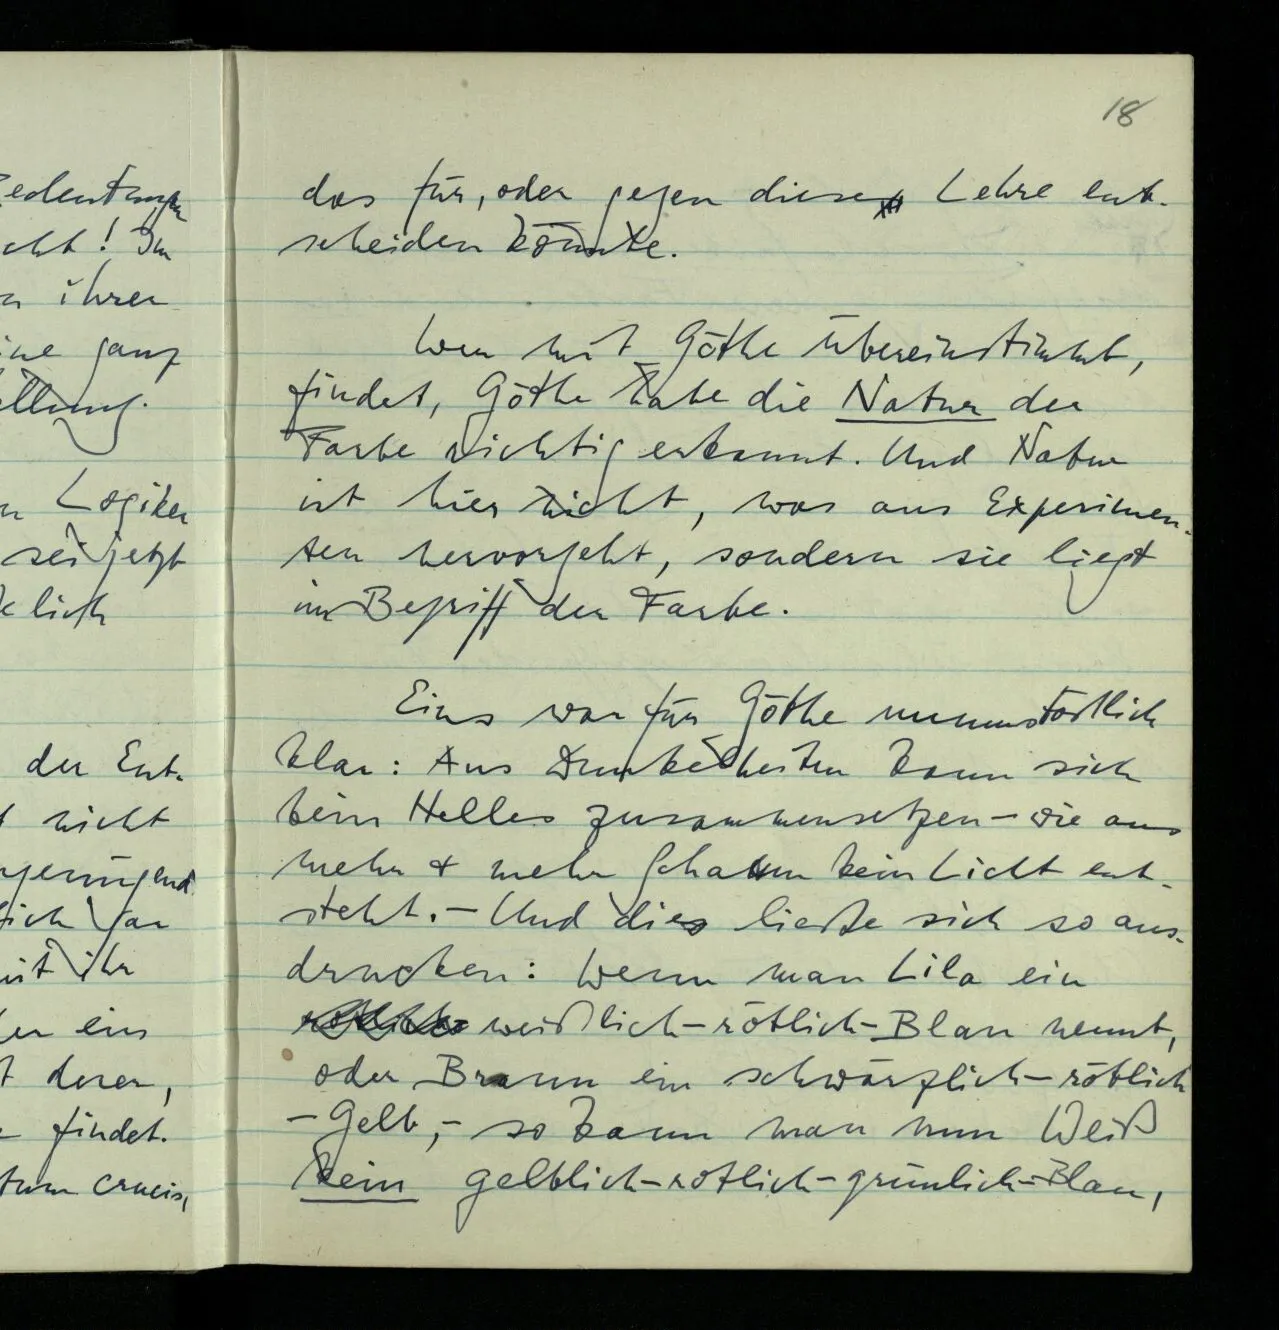 18
Bedeutung
cht! Im
ihrer
ine ganz
ellung.
Logiker
sei jetzt
lich
der Ent-
nicht
genügend
lich gar
mit ihr
ein
derer,
findet.
tum crucis,
das für, oder gegen diese Lehre ent-
scheiden könnte.
Wer mit Göthe übereinstimmt,
findet, Göthe habe die Natur der
Farbe richtig erkannt. Und Natur
ist hier nicht, was aus Experimen-
ten hervorgeht, sondern sie liegt
im Begriff der Farbe.
Eins war für Göthe unumstößlich
klar: Aus Dunkelheiten kann sich
kein Helles zusammensetzen – wie aus
mehr & mehr Schatten kein Licht ent-
steht. – Und dies ließe sich so aus-
drucken: Wenn man Lila ein
weißlich-rötlich-Blau nennt,
oder Braun ein schwärzlich-rötlich
-Gelb, – so kann man nun Weiß
kein gelblich-rötlich-grünlich-Blau,